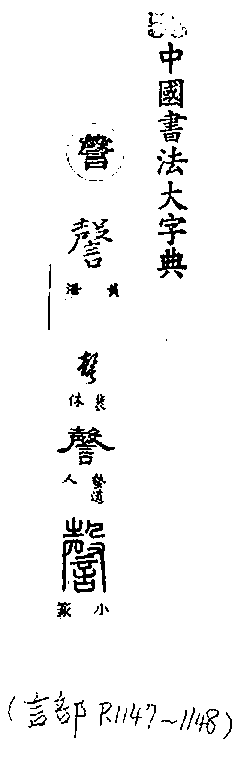 中國書法大字典
謦
謦
黃潛
謦
裴休
謦
熬道人
謦
小篆
(言部 P.1147~1148)